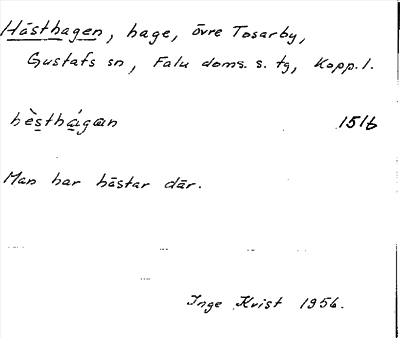 Hästhagen, hage, övre Tosarby,
Gustafs sn, Falu doms. s. tg, Kopp. l.
hèsthágan 1516
Man har hästar där.
Inge Kvist 1956.